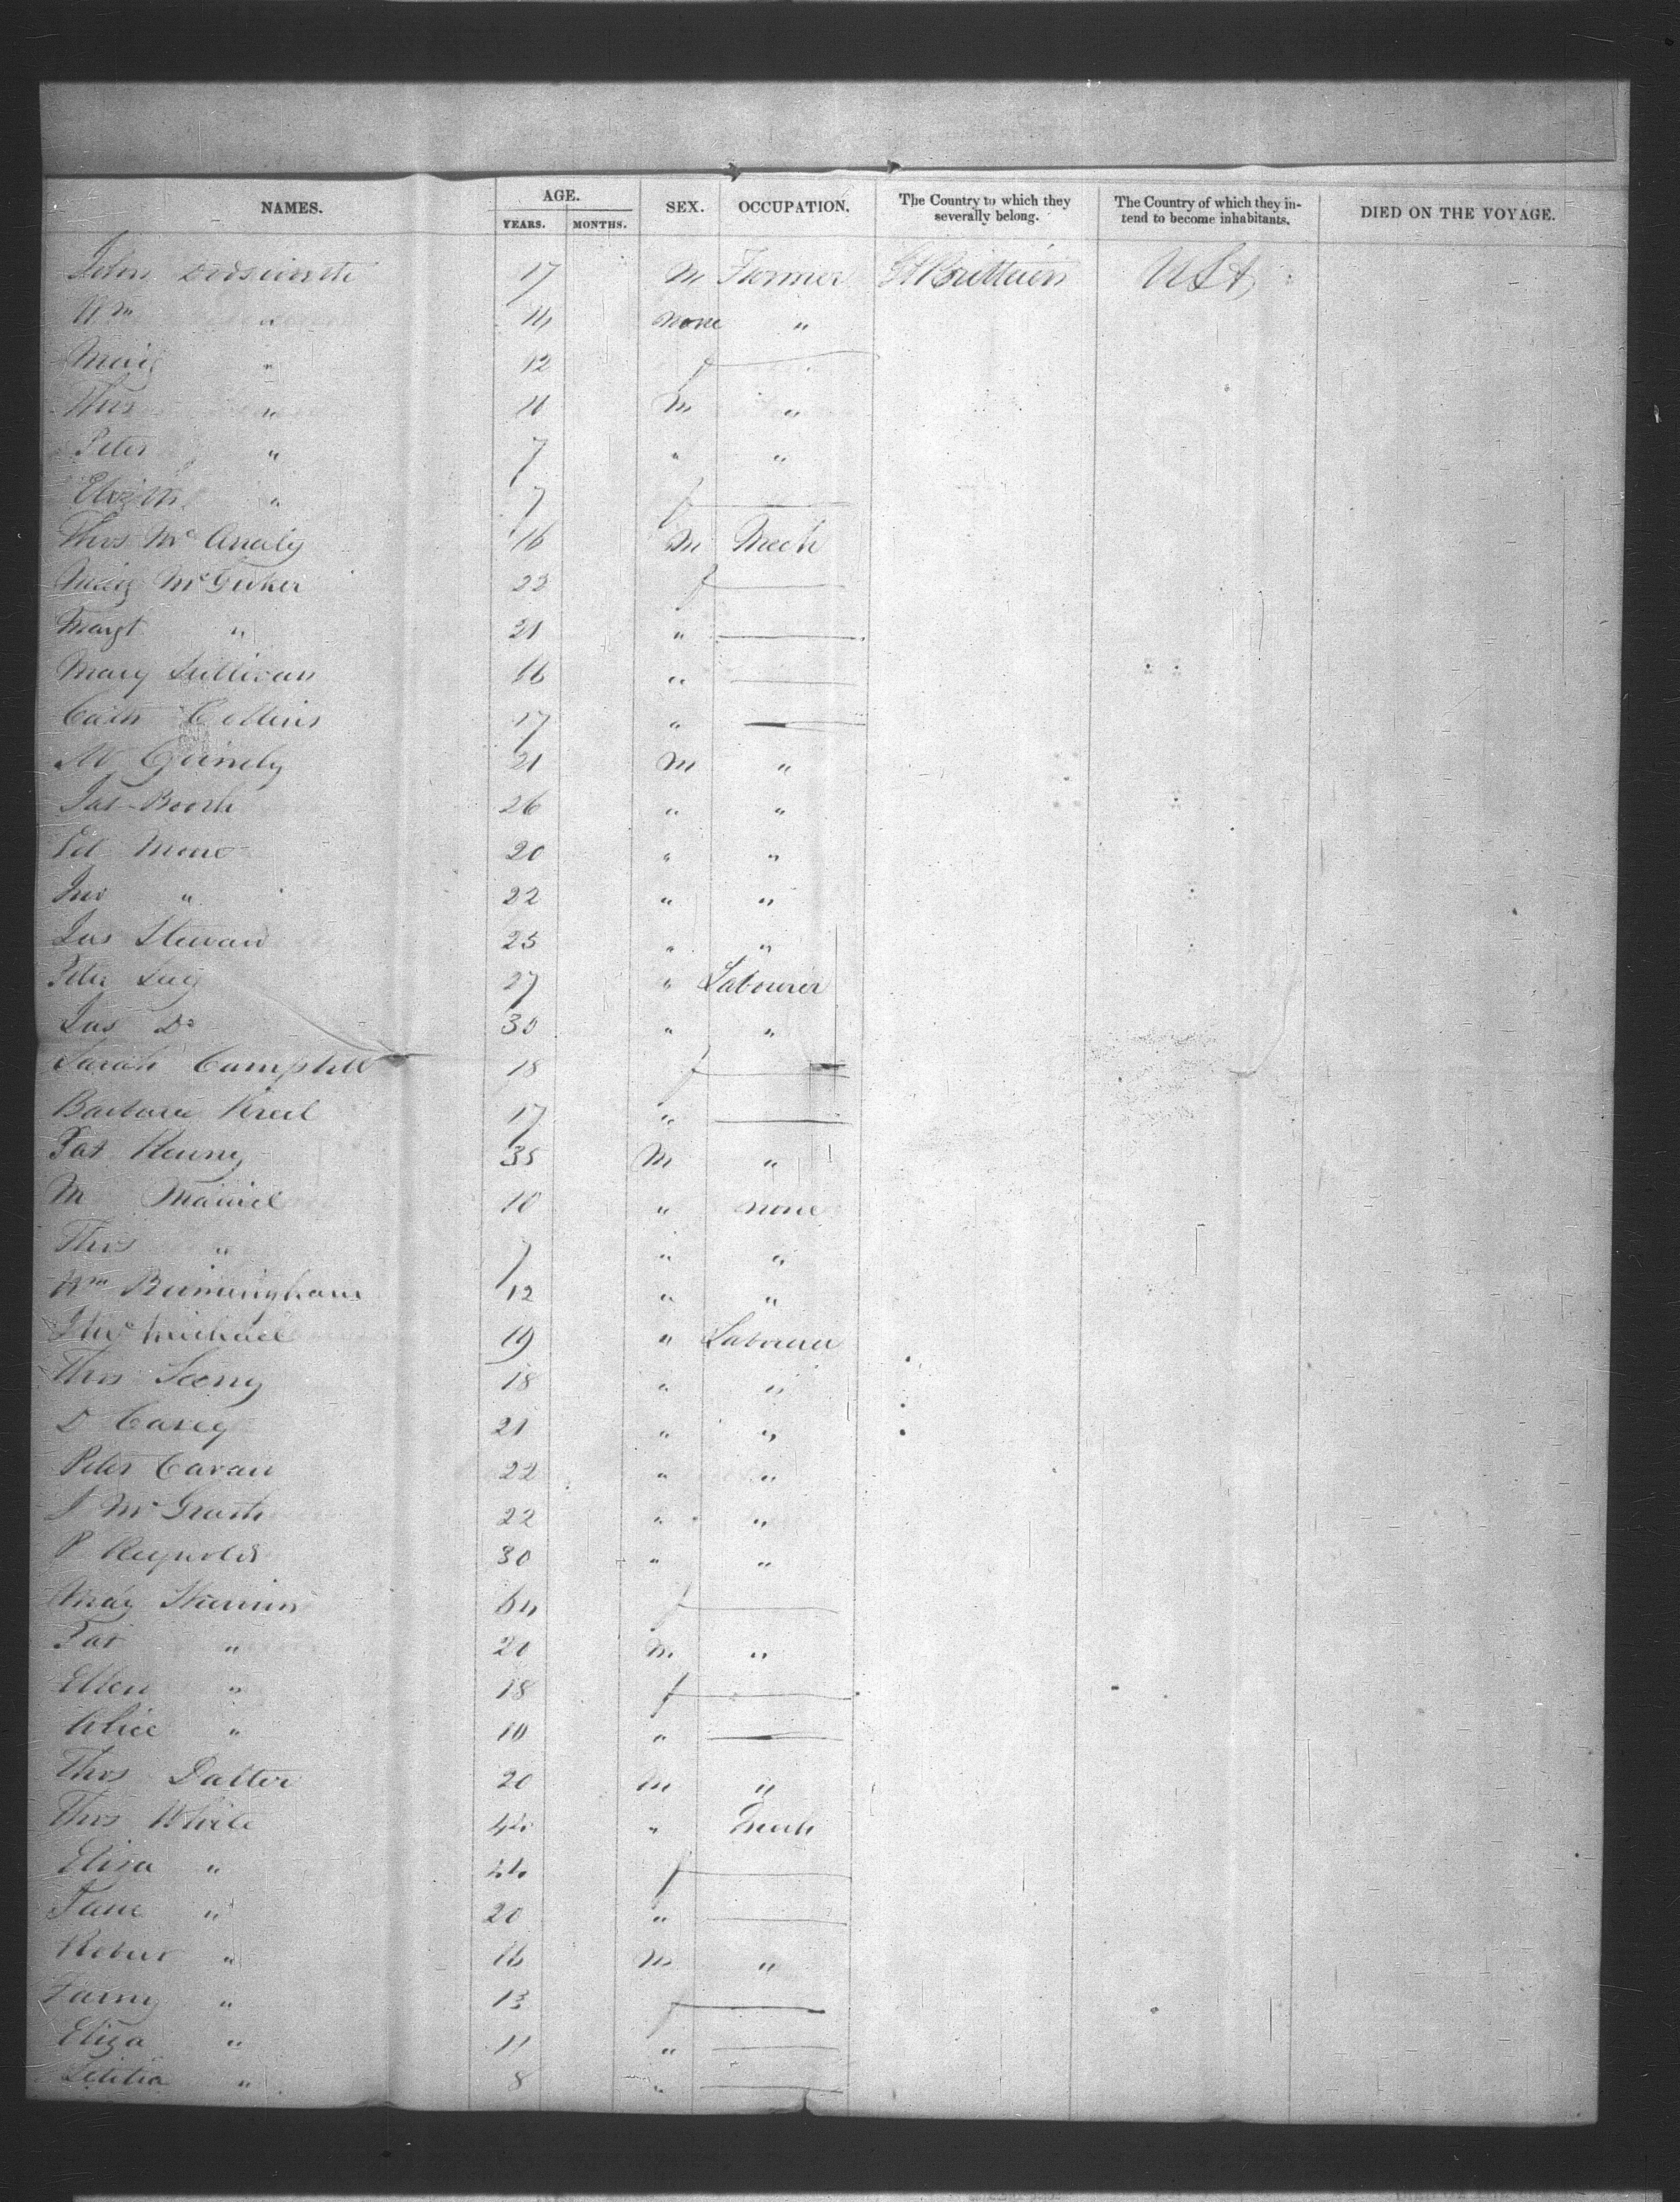 NAMES. AGE. SEX. OCCUPATION. The Country to which they severally belong. The Country of which they intend to become inhabitants. DIED ON THE VOYAGE.
YEARS. MONTHS.
John Dodsworth 17 M Farmer Gt Brittain USA
Wm " 14 none "
Mary " 12 f —
Thos " 11 M "
Peter " 7 " "
Elizth " 7 f —
Thos Mc Anally 16 M Mech
Mary Mc 22 f —
Margt " 21 " —
Mary Sullivan 16 " —
Cath Collins 17 " —
21 M "
Jas Booth 26 " "
Ed 20 " "
Jno " 22 " "
Jas Steward 25 " "
Peter 27 " Labourer
Jas Do 30 " "
Sarah Campbell 18 f —
Barbara 17 " —
Pat 35 M "
M 10 " none
Thos " 7 " "
Wm Birmingham 12 " "
Michael 19 " Labourer
Thos 18 " "
D Casey 21 " "
Peter Cavan 22 " "
J McGrath 22 " "
P Reynolds 30 " "
Mary 64 f —
Pat " 20 M "
Ellen " 18 f —
Alice " 10 " —
Thos Dalter 20 M "
Thos White " Mech
Eliza " 44 f —
Jane " 20 " —
Robert " 16 M "
Fanny " 13 f —
Eliza " 11 " —
Letitia " 8 " —